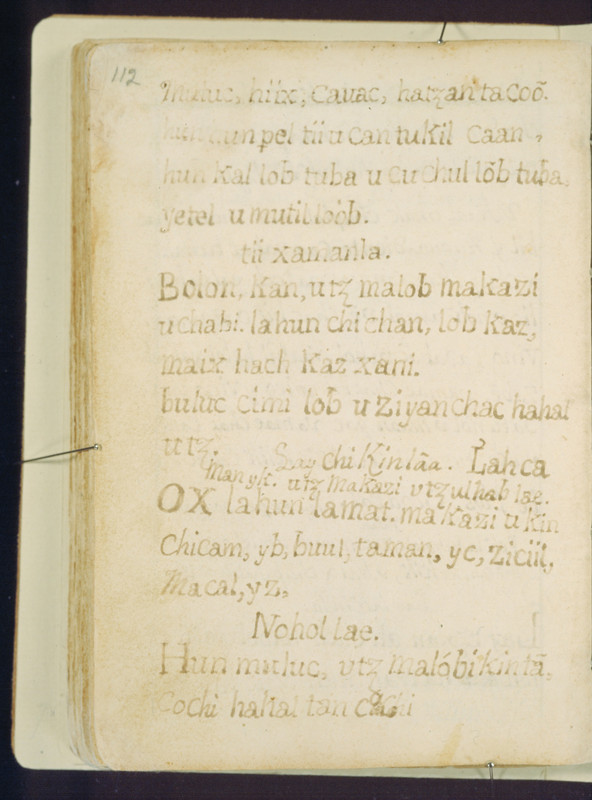 112
Muluc, hiix, Cauac, hatzan ta coõ.
hun hun pel tii u can tukil caan,
hun kal lob tuba u cu chul lôb tuba,
yetel u mutil loob.
tii xamanla.
Bolon, kan, utz malob makazi
u chabi. lahun chi chan, lob kaz,
maix hach kaz xani.
buluc cimi lob u ziyan chac hahal
utz. chi kin lãa. Lahca
man yk. utz makazi vtz ul hab lae.
OX lahun lamat. makazi u kin
chicam, yb, buul, taman, yc, ziciil,
Macal, yz,
Nohol lae.
Hun muluc, vtz malóbi kintã,
cochi hahal tan cochi